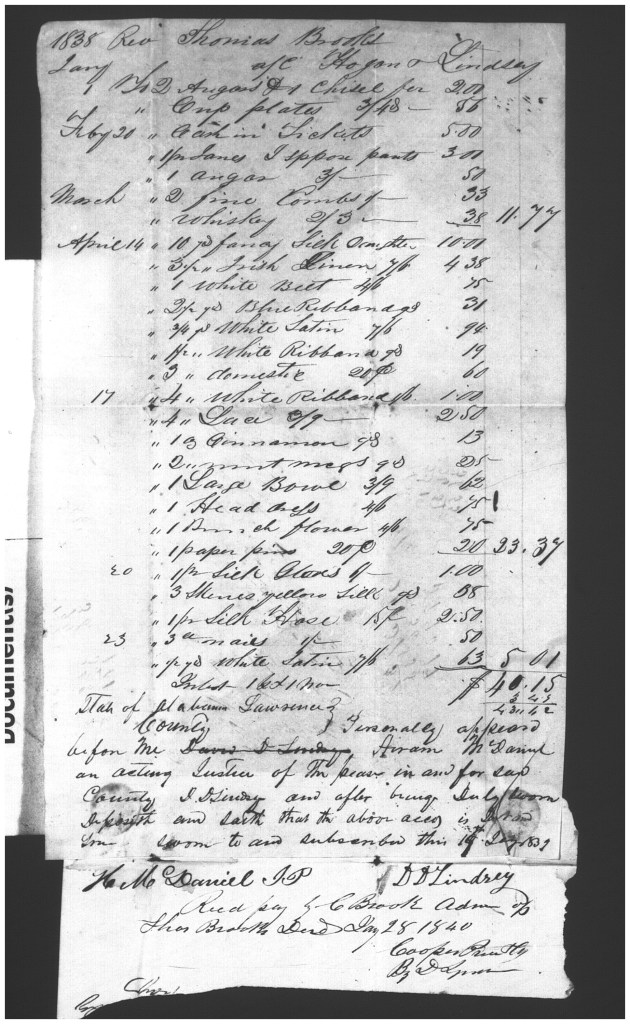 1838 Rev Thomas Brooks
Jany a/c Hogan & Lindsey
1 To 2 Augars & 1 Chisel for 2.00
" Cup plates 3/48 — 86
Feby 20 " Tickets 5.00
" 1 pr Janes pants 3.00
" 1 augar 3/— 50
March " 2 fine Combs 1/— 33
" Whiskey 2/3 — 38 11.77
April 14 " 10 yd fancy Silk Daughter 10.00
" 3 " Irish Linen 7/6 4 38
" 1 White Belt 4/6 75
" 2 1/2 yd Blue Ribband 9d 31
" 3/4 yd White Satin 7/6 94
" White Ribband 9d 19
" 3 " domestic 20¢ 60
17 " 4 " White Ribband 1/6 1.00
" 4 " Lace 3/9 — 2.50
" 1 oz Cinnamon 9d 13
" 2 " nut megs 9d 25
" 1 Large Bowl 3/9 62
" 1 Head dress 4/6 75
" 1 Bunch flower 4/6 75
" 1 paper pins 20¢ 20 23.37
20 " 1 pr Silk Gloves 6/— 1.00
" 3 Skenes yellow Silk 9d 38
" 1 pr Silk Hose 15/ 2.50
23 " 3 nails 1/— 50
" 1/2 yd White Satin 7/6 63 5 01
$ 40.15
State of Alabama Lawrence
County } Personally appeard
before Me David D Lindsey Hiram McDaniel
an acting Justice of the pease in and for said
County D D Lindsey and after being Duly sworn
and saith that the above acco is
sworn to and subscribed this Jany 1839
H McDaniel J P D D Lindsey
Recd pay of C Brook Adm of
Thos Brooks Decd Jay 28 1840
Cooper
By D
DOCUMENTS)